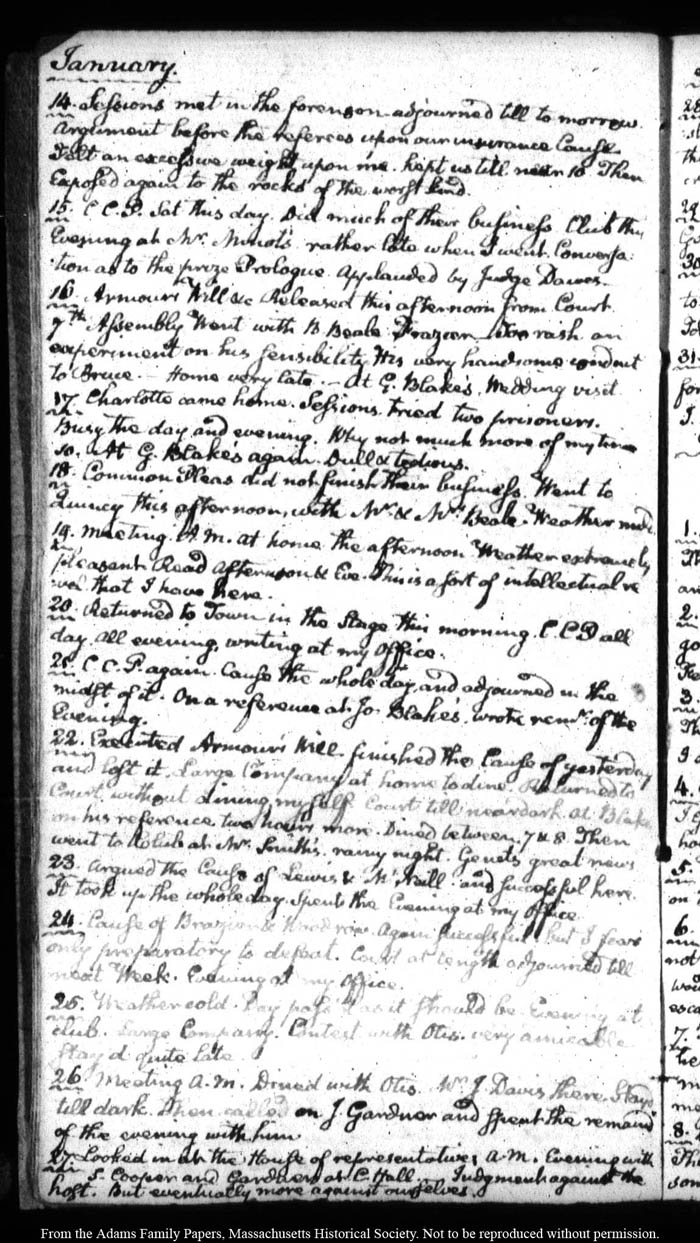 January.
14. Sessions met in the forenoon adjourned till to morrow.
Argument before the referees upon our insurance Cause.
Felt an excessive weight upon me. kept us till near 10. Then
Exposed again to the rocks of the worst kind.
15. C.C.P. Sat this day. Did much of their business. Club this
Evening at Mr. Minot's. rather late when I went. Conversa-
tion as to the prize Prologue. Applauded by Judge Dawes.
16. Armour's Will &c. Released this afternoon from Court.
7th Assembly Went with B Beale Frazier too rash an
experiment on his sensibility. His very handsome conduct
to Bruce — Home very late. — At G. Blake's, Wedding visit
17. Charlotte came home. Sessions. Tried two prisoners.
Busy the day and evening. Why not much more of my time
so. At G. Blake's again. Dull & tedious.
18. Common Pleas did not finish their business. Went to
Quincy this afternoon, with Mr. & Mrs. Beale. Weather mod.
19. Meeting. A.M. at home the afternoon Weather extremely
pleasant. Read Afternoon & Eve. This is a sort of intellectual re
that I have here.
20. Returned to Town in the Stage this morning. C.C.P. all
day. all evening, writing at my office.
21. C.C.P. again. Cause the whole day, and adjourned in the
midst of it. On a reference at Jo. Blake's. wrote remr. of the
Evening.
22. Executed Armour's Will. finished the Cause of yesterday
and lost it. Large Company at home to dine. Returned to
Court, without dining myself. Court till near dark. At Blake
on his reference, two hours more. Dined between 7 & 8. Then
went to Club at Mr. Smith's. rainy night. Genet's great news
23. Argued the Cause of Lewis & McNeill and successful here.
It took up the whole day. Spent the Evening at my office.
24. Cause of Brazier & Again successful, but I fear
only preparatory to defeat. Court at length adjourned till
next Week. Evening at my office.
25. Weather cold. Day pass'd as it should be. Evening at
club. Large Company. Contest with Otis. very amicable
Stay'd quite late.
26. Meeting A.M. Dined with Otis. Mr. J. Davis there. Stay'd
till dark. Then called on J. Gardner and spent the remaind
of the evening with him
27. Looked in at the House of representatives A.M. Evening with
S. Cooper and Gardner at C. Hall. Judgment against the
host. But eventually more against ourselves.
From the Adams Family Papers, Massachusetts Historical Society. Not to be reproduced without permission.